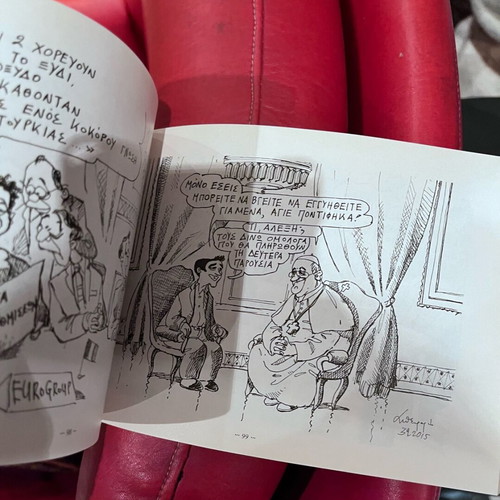 2 ΧΟΡΕΥΟΥΝ
ΤΟ ΞΥΔΙ,
ΚΑΘΟΝΤΑΝ
ΕΝΟΣ ΚΟΚΟΡΟΥ
ΤΟΥΡΚΙΑΣ...»
EUROGROUP
ΜΟΝΟ ΕΣΕΙΣ
ΜΠΟΡΕΙΤΕ ΝΑ ΒΓΕΙΤΕ ΝΑ ΕΓΓΥΗΘΕΙΤΕ
ΓΙΑ ΜΕΝΑ, ΑΓΙΕ ΠΟΝΤΙΦΗΚΑ!
ΤΙ, ΑΛΕΞΗ;
ΤΟΥΣ ΔΙΝΩ ΟΜΟΛΟΓΑ
ΠΟΥ ΘΑ ΠΛΗΡΩΘΟΥΝ
ΤΗ ΔΕΥΤΕΡΑ
ΠΑΡΟΥΣΙΑ
2015
— 99 —